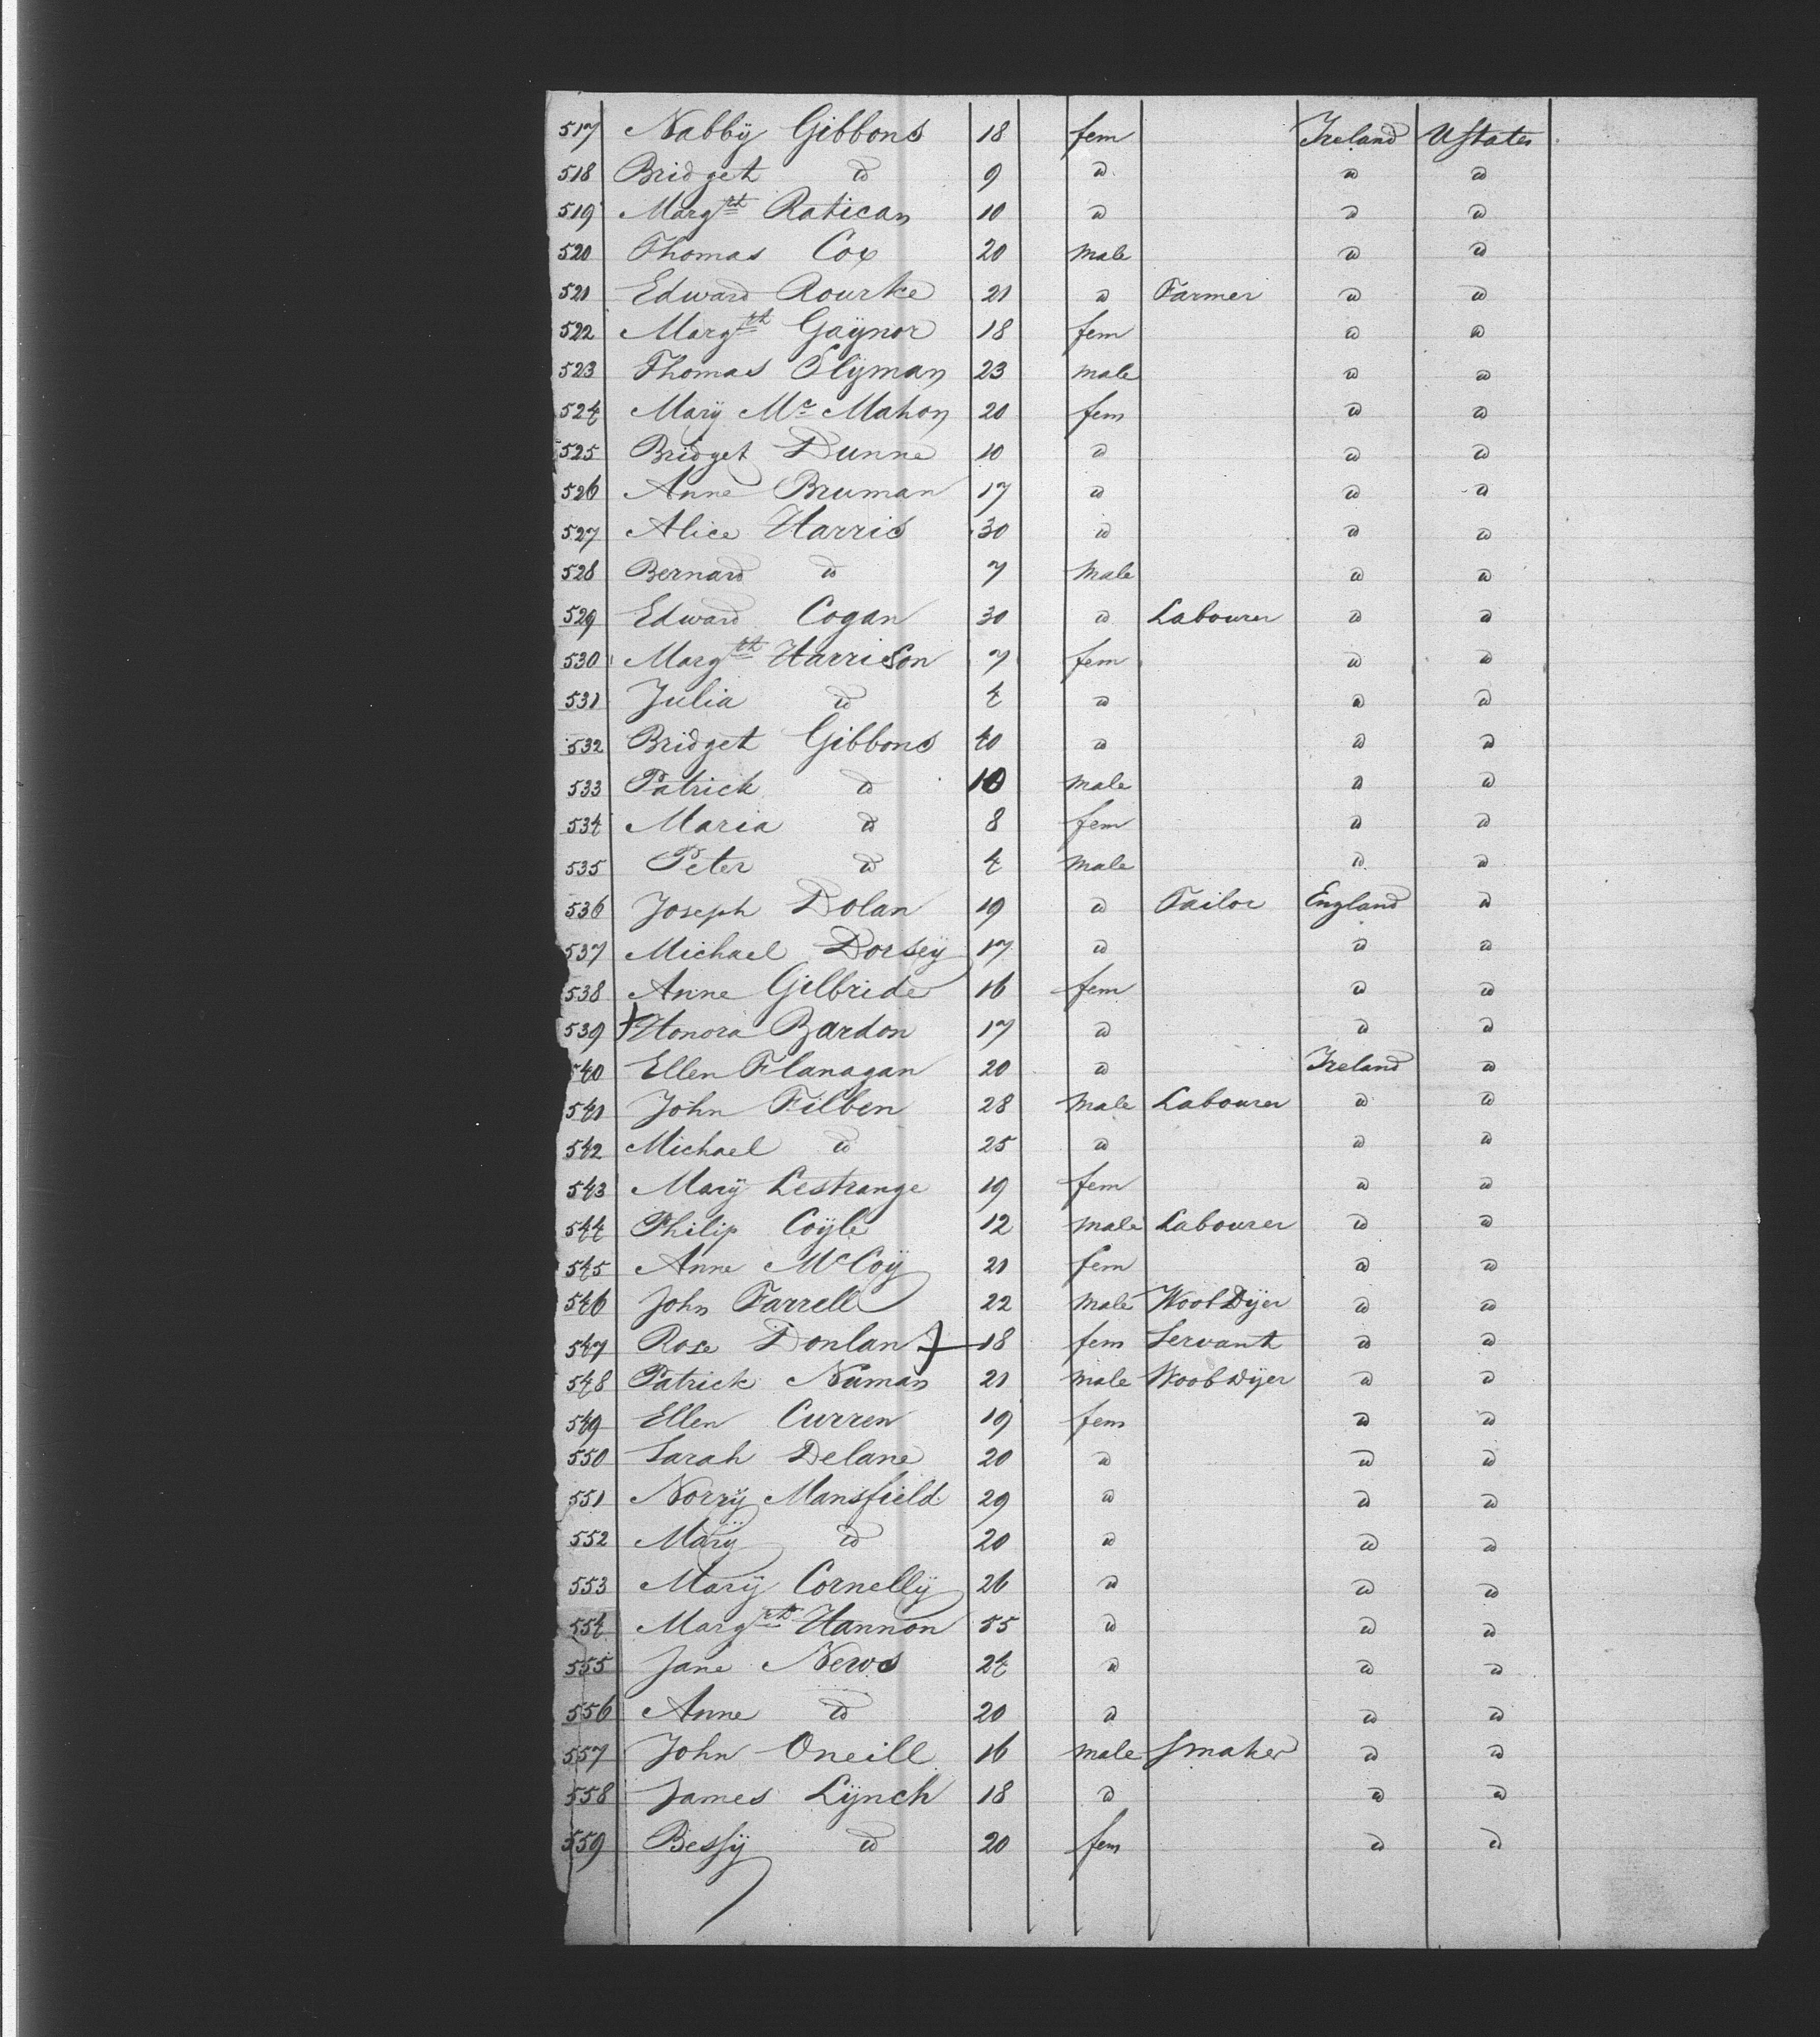 517 Nabby Gibbons 18 fem Ireland UStates
518 Bridget do 9 do do do
519 Margret Ratican 10 do do do
520 Thomas Cox 20 male do do
521 Edward Rourke 21 do Farmer do do
522 Margret Gaynor 18 fem do do
523 Thomas Slyman 23 male do do
524 Mary Mc Mahon 20 fem do do
525 Bridget Dunne 10 do do do
526 Anne Bruman 17 do do do
527 Alice Harris 30 do do do
528 Bernard do 7 Male do do
529 Edward Cogan 30 do Labourer do do
530 Margret Harrison 7 fem do do
531 Julia do 4 do do do
532 Bridget Gibbons 40 do do do
533 Patrick do 10 male do do
534 Maria do 8 fem do do
535 Peter do 4 Male do do
536 Joseph Dolan 19 do Tailor England do
537 Michael Dorsey 17 do do do
538 Anne Gilbride 16 fem do do
539 + Honora Bardon 17 do do do
540 Ellen Flanagan 20 do Ireland do
541 John Filben 28 Male Labourer do do
542 Michael do 25 do do do
543 Mary Lestrange 19 fem do do
544 Philip Coyle 12 male Labourer do do
545 Anne McCoy 21 fem do do
546 John Farrell 22 Male Wool Dyer do do
547 Rose Donlan + 18 fem Servant do do
548 Patrick Numan 21 Male Wool Dyer do do
549 Ellen Curren 19 fem do do
550 Sarah Delane 20 do do do
551 Norry Mansfield 29 do do do
552 Mary do 20 do do do
553 Mary Cornelly 26 do do do
554 Margret Hannon 55 do do do
555 Jane News 24 do do do
556 Anne do 20 do do do
557 John Oneill 16 male Smaker do do
558 James Lynch 18 do do do
559 Bessy do 20 fem do do